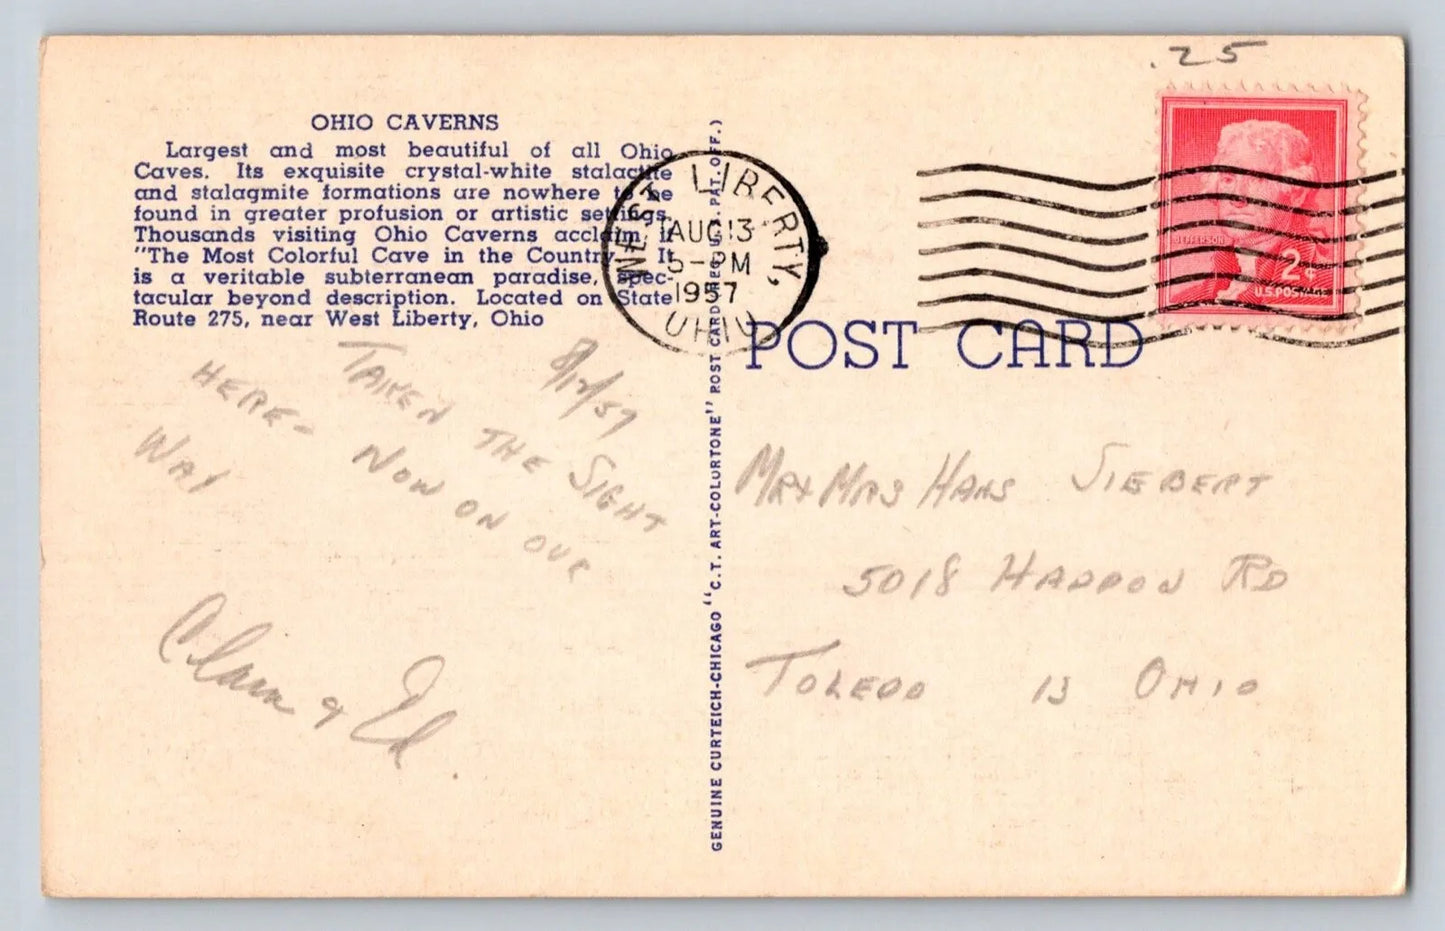 .25
OHIO CAVERNS
Largest and most beautiful of all Ohio
Caves. Its exquisite crystal-white stalactite
and stalagmite formations are nowhere to be
found in greater profusion or artistic settings.
Thousands visiting Ohio Caverns acclaim it
"The Most Colorful Cave in the Country." It
is a veritable subterranean paradise, spec-
tacular beyond description. Located on State
Route 275, near West Liberty, Ohio
8/12/57
TAKEN THE SIGHT
HERE - NOW ON OUR
WAY
Clara & Ed.
WEST LIBERTY,
AUG 13
5-PM
1957
OHIO
GENUINE CURTEICH-CHICAGO "C.T. ART-COLORTONE" POST CARD (REG. U.S. PAT. OFF.)
JEFFERSON
2¢
U.S. POSTAGE
POST CARD
MR & MRS HANS SIEBERT
5018 HADDON RD
TOLEDO 13 OHIO